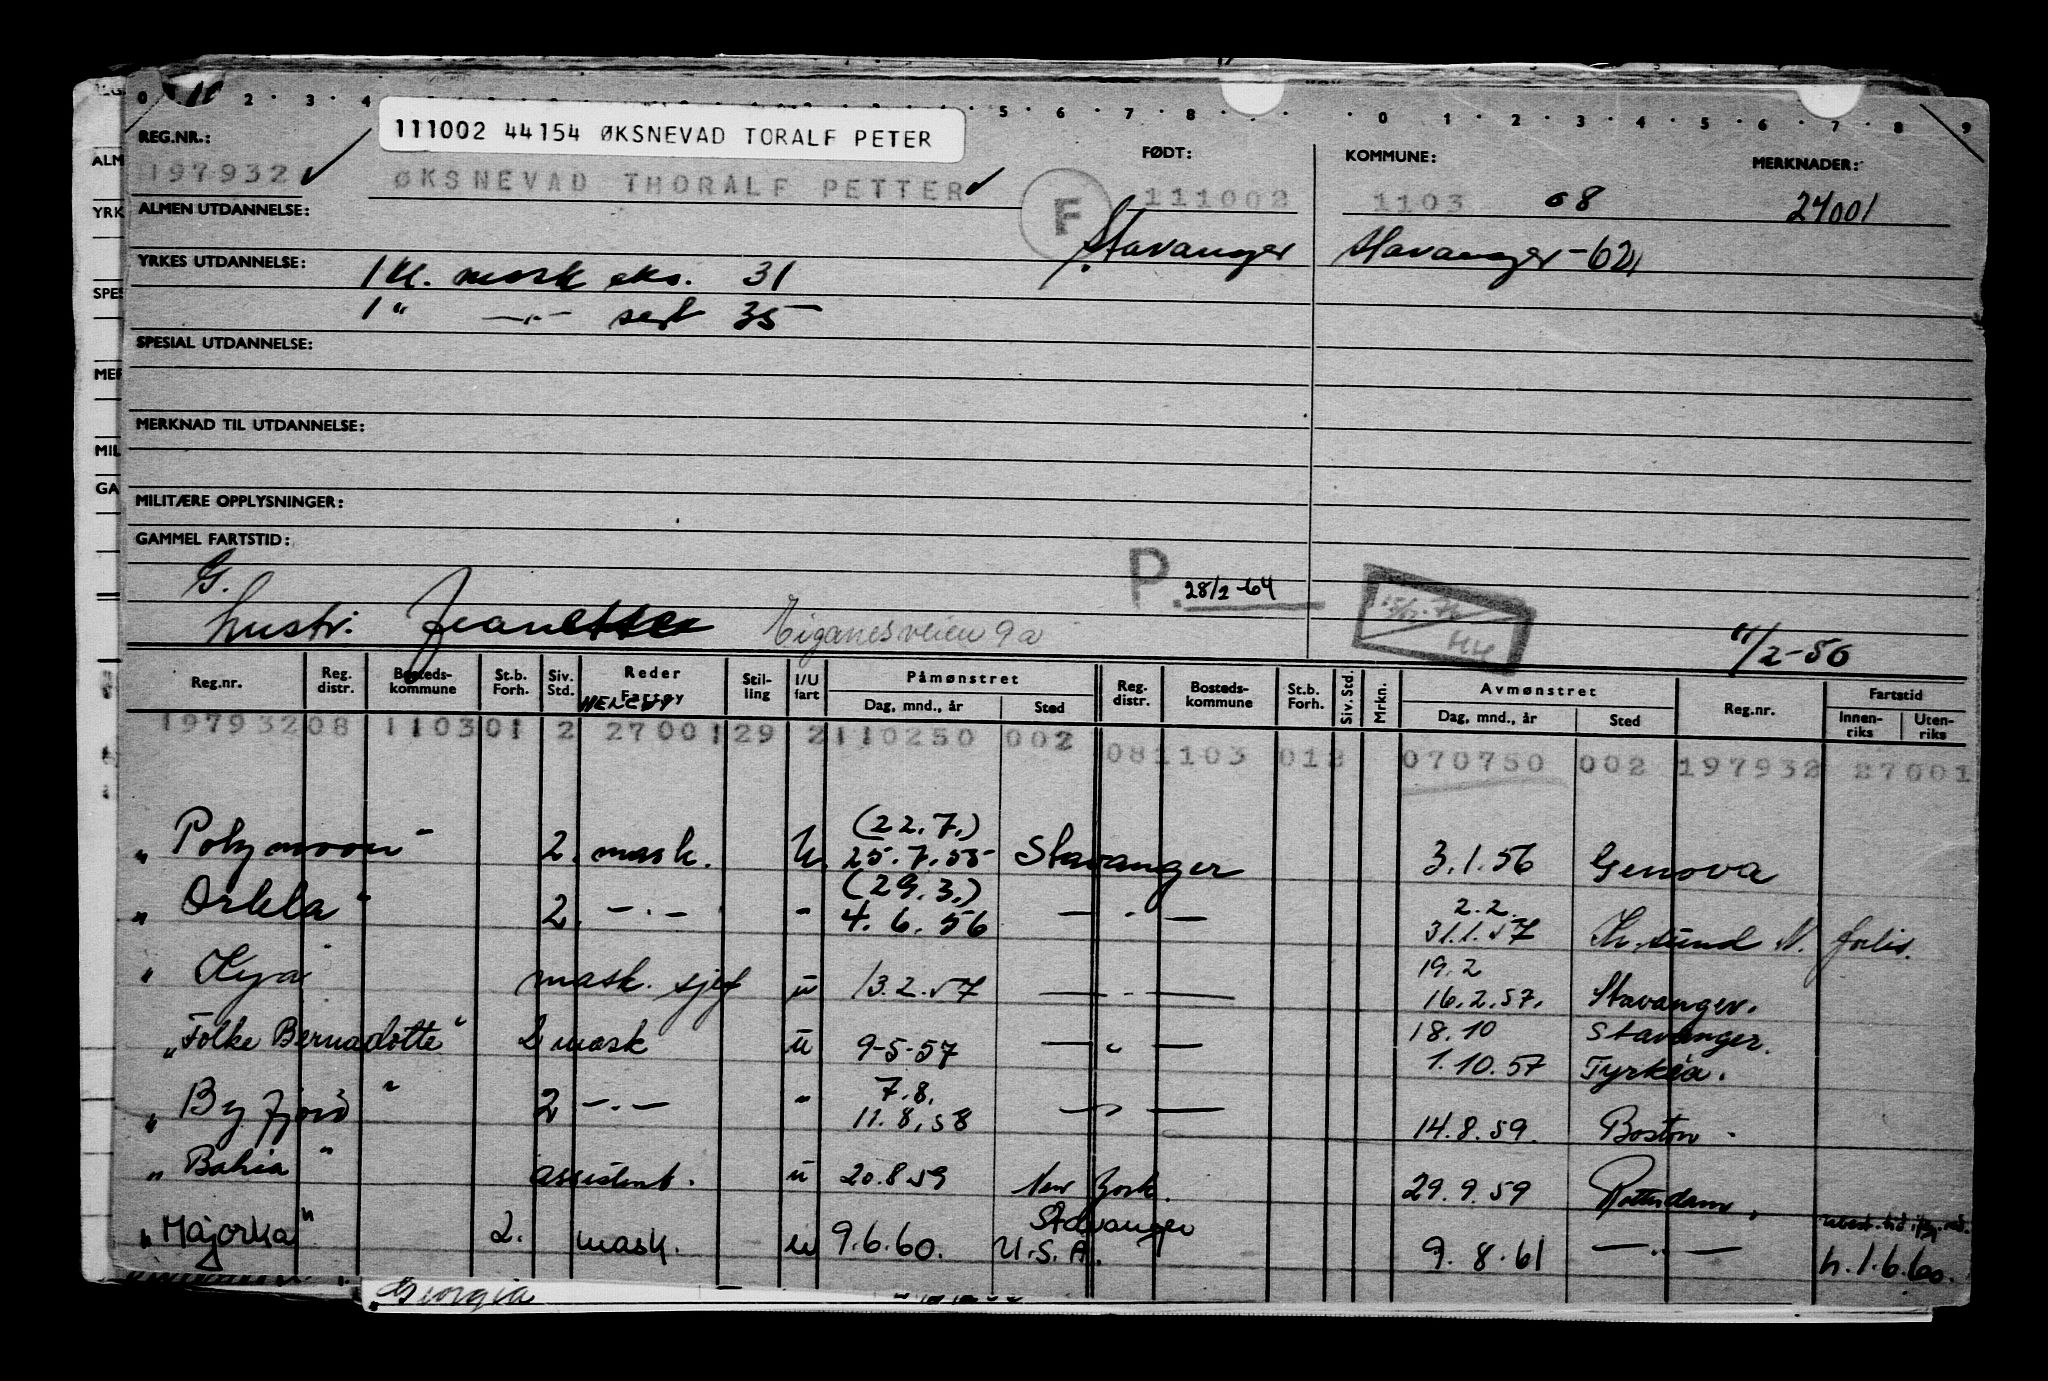 111002 44154 ØKSNEVAD TORALF PETER
REG.NR.: FØDT: KOMMUNE: MERKNADER:
197932 ØKSNEVAD THORALF PETTER F 111002 1103 08 24001
ALMEN UTDANNELSE: Stavanger Stavanger -62
YRKES UTDANNELSE: 1 kl. mask eks. 31
1 " —"— sert 35
SPESIAL UTDANNELSE:
MERKNAD TIL UTDANNELSE:
MILITÆRE OPPLYSNINGER:
GAMMEL FARTSTID:
G. P. 28/2-64
hustr. Jeanette Eiganesveien 9a 11/2-56
Reg.nr. Reg. distr. Bosteds- kommune St.b. Forh. Siv. Std. Reder Fartøy Stil- ling I/U fart Påmønstret Dag, mnd., år Sted Reg. distr. Bosteds- kommune St.b. Forh. Siv. Std. Mrkn. Avmønstret Dag, mnd., år Sted Reg.nr. Fartstid Innen- riks Uten- riks
197932 08 1103 01 2 27001 29 2 110250 002 081103 012 070750 002 197932 27001
(22.7.)
„Polymoon" 2. mask. U. 25.7.55 Stavanger 3.1.56 Genova
(29.3.) 2.2.
„Orkla" 2. —"— " 4.6.56 —"— 31.1.57 Kr.sund N. forlis.
19.2
„Kya" mask. sjef u 13.2.57 —"— 16.2.57. Stavanger.
18.10 Stavanger.
„Folke Bernadotte" 2 mask u 9-5-57 —"— 1.10.57 Tyrkia.
7.8.
„Byfjord" 2 —"— " 11.8.58 —"— 14.8.59. Boston
„Bahia" assistent. u 20.8.59 New York. 29.9.59 Rotterdam.
Stavanger
„Majorka" 2. mask. u 9.6.60. U.S.A. 9.8.61 —"— h.1.6.60.
„Georgia